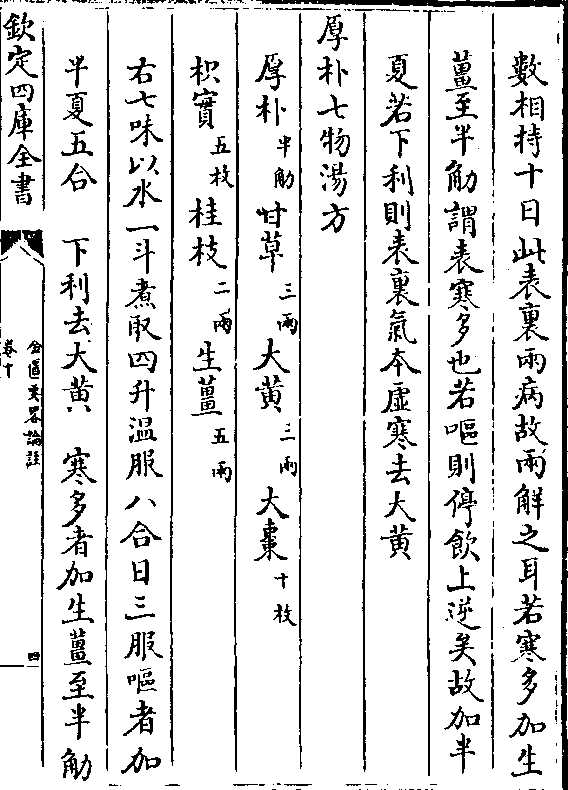 數相持十日此表裏兩病故兩解之耳若寒多加生
薑至半觔謂表寒多也若嘔則停飲上逆矣故加半
夏若下利則表裏氣本虛寒去大黄
厚朴七物湯方
厚朴半觔 甘草三兩 大黄三兩 大棗十枚
枳實五枚 桂枝二兩 生薑五兩
右七味以水一斗煮取四升温服八合日三服嘔者加
半夏五合 下利去大黄 寒多者加生薑至半觔
欽定四庫全書
金匱要畧論註
卷十
四